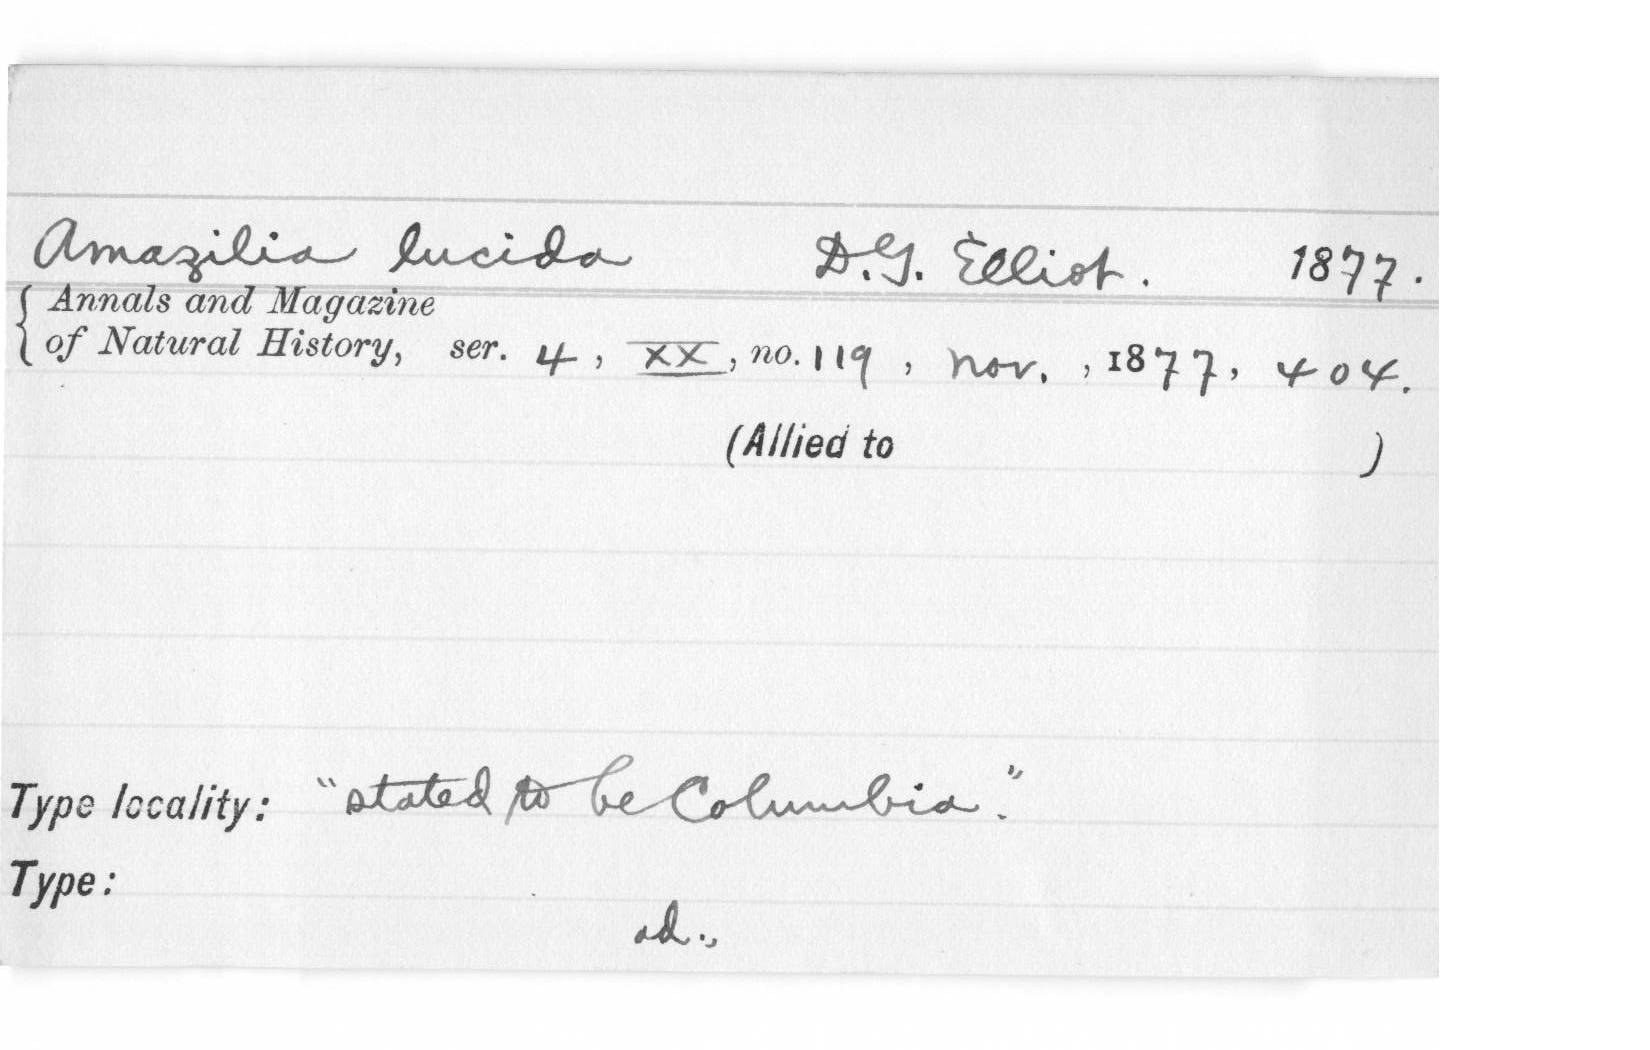 Amazilia lucida D.G. Elliot. 1877.
Annals and Magazine
of Natural History, ser. 4, XX, no. 119, Nov., 1877, 404.
(Allied to )
Type locality: "stated to be Columbia."
Type:
ad.,